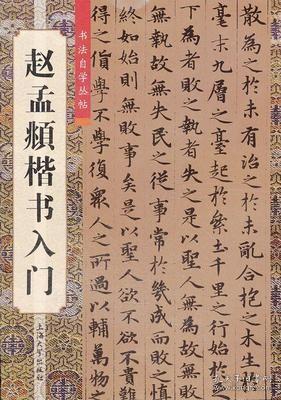 书法自学丛帖
赵孟頫楷书入门
上海大学出版社
散為之於未有治之於未亂合抱之木生
毫末九層之臺起於累土千里之行始於
下為者敗之執者失之是以聖人無為故
無執故無失民之從事常於幾成而敗之慎
終如始則無敗事矣是以聖人欲不欲不貴難
得之貨學不學復衆人之所過以輔萬物之